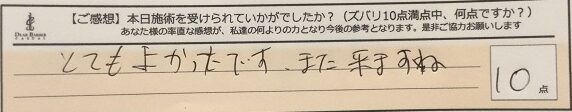 【ご感想】本日施術を受けられていかがでしたか？（ズバリ10点満点中、何点ですか？）
あなた様の率直な感想が、私達の何よりの力となり今後の参考となります。是非ご協力お願いします
DEAR BARBER
とてもよかったです、また来ますね
10点